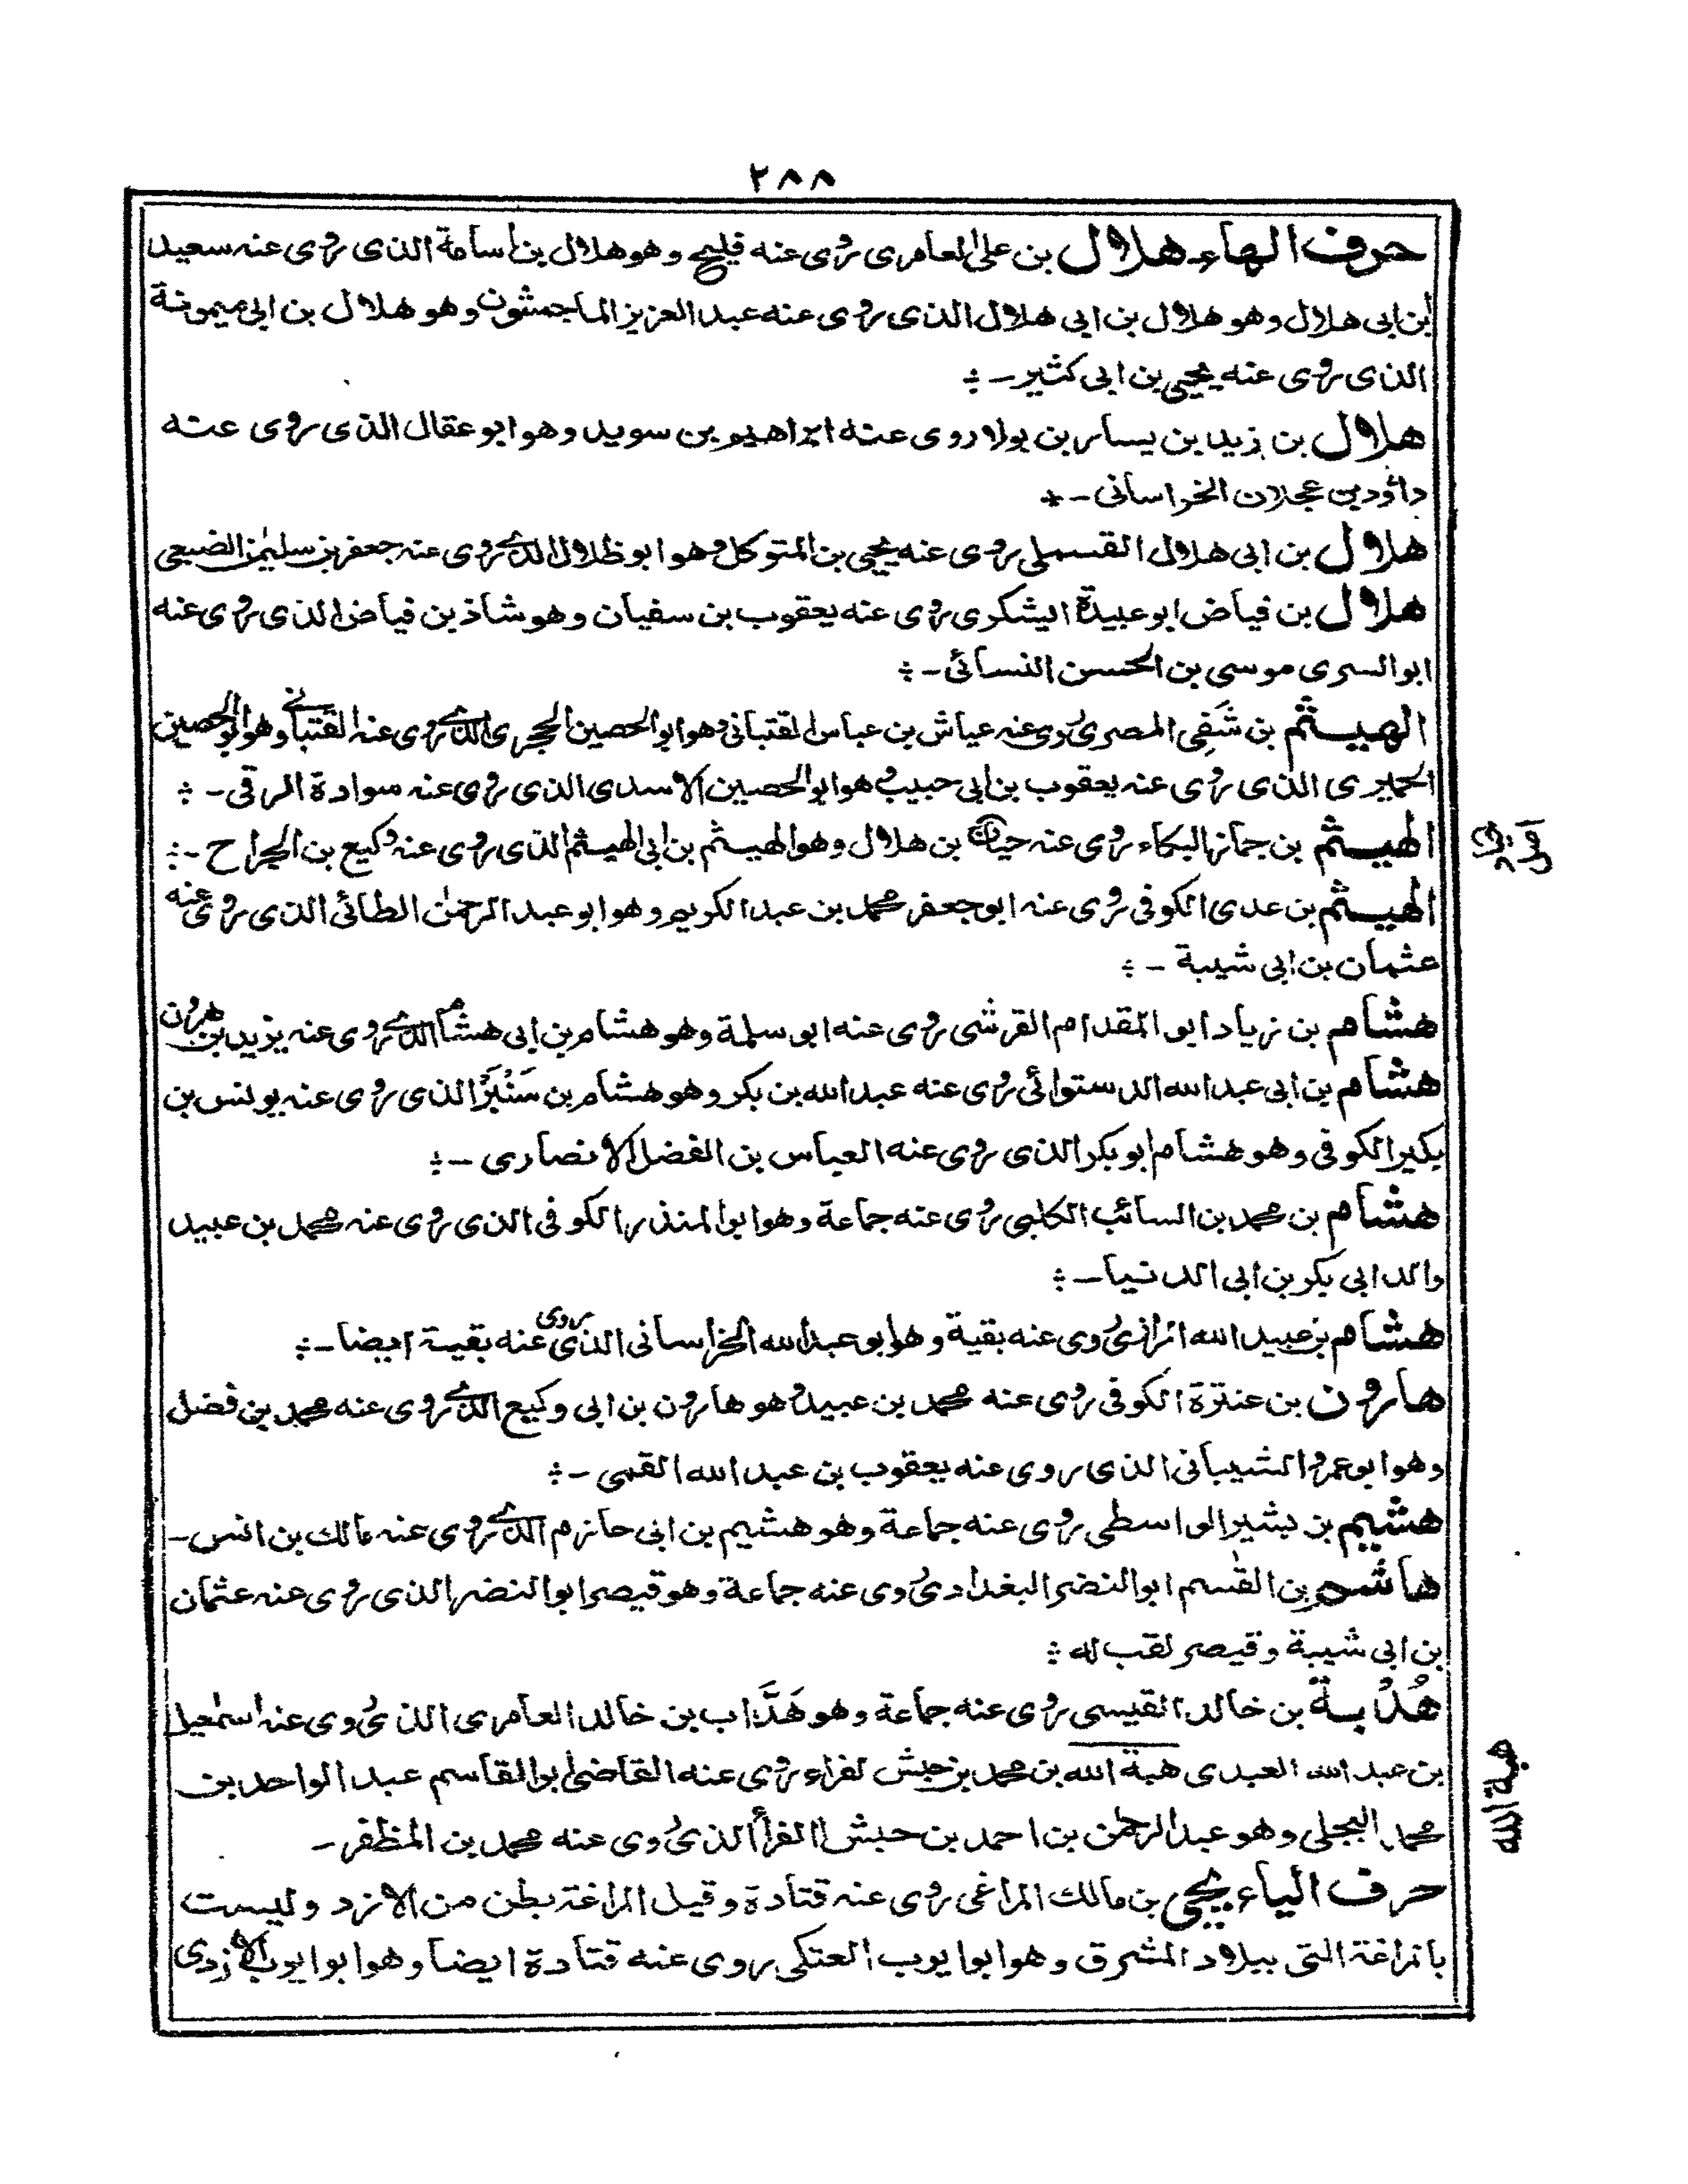 ٢٨٨
حرف الهاء هلال بن علی العامری روی عنه فلیح وهو هلال بن اسامة الذی روی عنه سعید
ابن ابی هلال وهو هلال بن ابی هلال الذی روی عنه عبد العزیز الماجشون وهو هلال بن ابی میمونة
الذی روی عنه یحیی بن ابی کثیر -
هلال بن زید بن یسار بن بولا روی عنه ابراهیم بن سوید وهو ابو عقال الذی روی عنه
داؤد بن عجلان الخراسانی -
هلال بن ابی هلال القسملی روی عنه یحیی بن المتوکل وهو ابو ظلال الذی روی عنه جعفر بن سلیمٰن الضبعی
هلال بن فیاض ابو عبیدة الیشکری روی عنه یعقوب بن سفیان وهو شاذ بن فیاض الذی روی عنه
ابو السری موسی بن الحسن النسائی -
الهیثم بن شَفِی المصری روی عنه عیاش بن عباس القتبانی وهو ابو الحصین الحجری الذی روی عنه القتبانی وهو ابو الحصین
الحمیری الذی روی عنه یعقوب بن ابی حبیب وهو ابو الحصین الاسدی الذی روی عنه سوادة الرقی -
الهیثم بن جماز البکاء روی عنه حیان بن هلال وهو الهیثم بن ابی الهیثم الذی روی عنه وکیع بن الجراح -
الهیثم بن عدی الکوفی روی عنه ابو جعفر محمد بن عبد الکریم وهو ابو عبد الرحمٰن الطائی الذی روی عنه
عثمان بن ابی شیبة -
هشام بن زیاد ابو المقدام القرشی روی عنه ابو سلمة وهو هشام بن ابی هشام الذی روی عنه یزید بن هرون
هشام بن ابی عبد الله الدستوائی روی عنه عبد الله بن بکر وهو هشام بن سَنْبَرْ الذی روی عنه یونس بن
بکیر الکوفی وهو هشام ابو بکر الذی روی عنه العباس بن الفضل الانصاری -
هشام بن محمد بن السائب الکلبی روی عنه جماعة وهو ابو المنذر الکوفی الذی روی عنه محمد بن عبید
والد ابی بکر بن ابی الدنیا -
هشام بن عبید الله الرازی روی عنه بقیة وهو ابو عبد الله الخراسانی الذی روی عنه بقیة ایضا -
هارون بن عنترة الکوفی روی عنه محمد بن عبید وهو هارون بن ابی وکیع الذی روی عنه محمد بن فضل
وهو ابو عمرو الشیبانی الذی روی عنه یعقوب بن عبد الله القمی -
هشیم بن بشیر الواسطی روی عنه جماعة وهو هشیم بن ابی حازم الذی روی عنه مالك بن انس -
هاشم بن القٰسم ابو النضر البغدادی روی عنه جماعة وهو قیصر ابو النضر الذی روی عنه عثمان
بن ابی شیبة وقیصر لقب له
هُدْبة بن خالد القیسی روی عنه جماعة وهو هَدَّاب بن خالد العامری الذی روی عنه اسمٰعیل
بن عبد الله العبدی هبة الله بن محمد بن حبش لفراء روی عنه القاضی ابو القاسم عبد الواحد بن
محمد البجلی وهو عبد الرحمٰن بن احمد بن حبش الفرأ الذی روی عنه محمد بن المظفر -
هبة الله
حرف الیاء یحیی بن مالك المراغی روی عنه قتادة وقیل المراغة بطن من الازد ولیست
بالمراغة التی ببلاد المشرق وهو ابو ایوب العتکی روی عنه قتادة ایضا وهو ابو ایوب الازدی